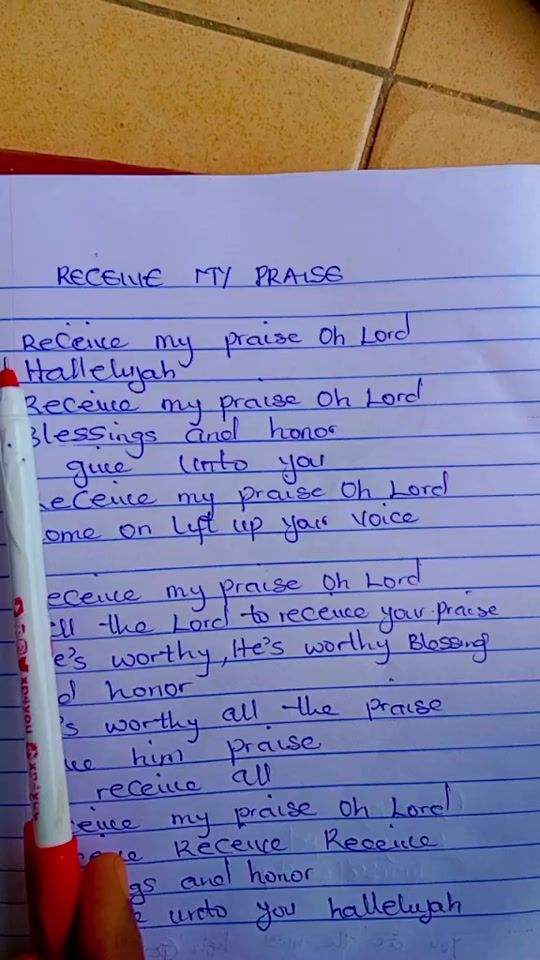 RECEIVE MY PRAISE
Receive my praise Oh Lord
Hallelujah
Receive my praise Oh Lord
Blessings and honor
give unto you
Receive my praise Oh Lord
ome on lift up your voice
eceive my praise Oh Lord
ll the Lord to receive your praise
e's worthy, He's worthy Blessing
d honor
s worthy all the praise
him praise
receive all
ceive my praise Oh Lord
Receive Receive
gs and honor
unto you hallelujah